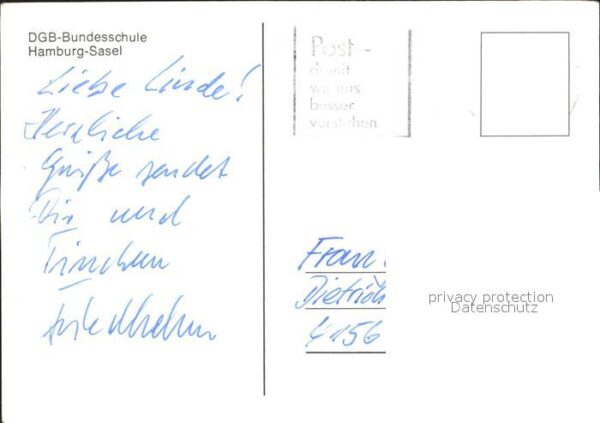 DGB-Bundesschule
Hamburg-Sasel
Liebe Linde!
Herzliche
Grüße sendet
Dir und
Tinchen
Friedhelm
Post-
damit
wir uns
besser
verstehen
Frau
Dietrich
4156
privacy protection
Datenschutz